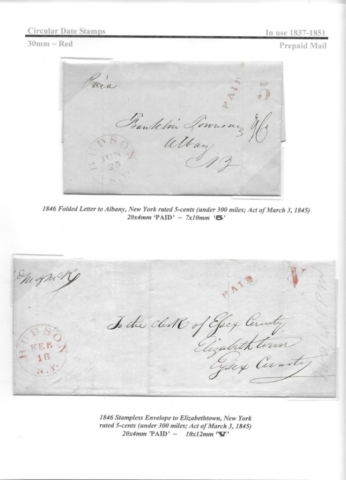 Circular Date Stamps
In use 1837-1851
30mm ~ Red
Prepaid Mail
Paid
PAID
5
Franklin Townsend
Albany
N.Y
HUDSON
JUN
25
1846 Folded Letter to Albany, New York rated 5-cents (under 300 miles; Act of March 3, 1845)
20x4mm 'PAID' ~ 7x10mm '5'
PAID
V
HUDSON
FEB
18
N.Y.
To the Clerk of Essex County,
Elizabethtown
Essex County
1846 Stampless Envelope to Elizabethtown, New York
rated 5-cents (under 300 miles; Act of March 3, 1845)
20x4mm 'PAID' ~ 10x12mm 'V'